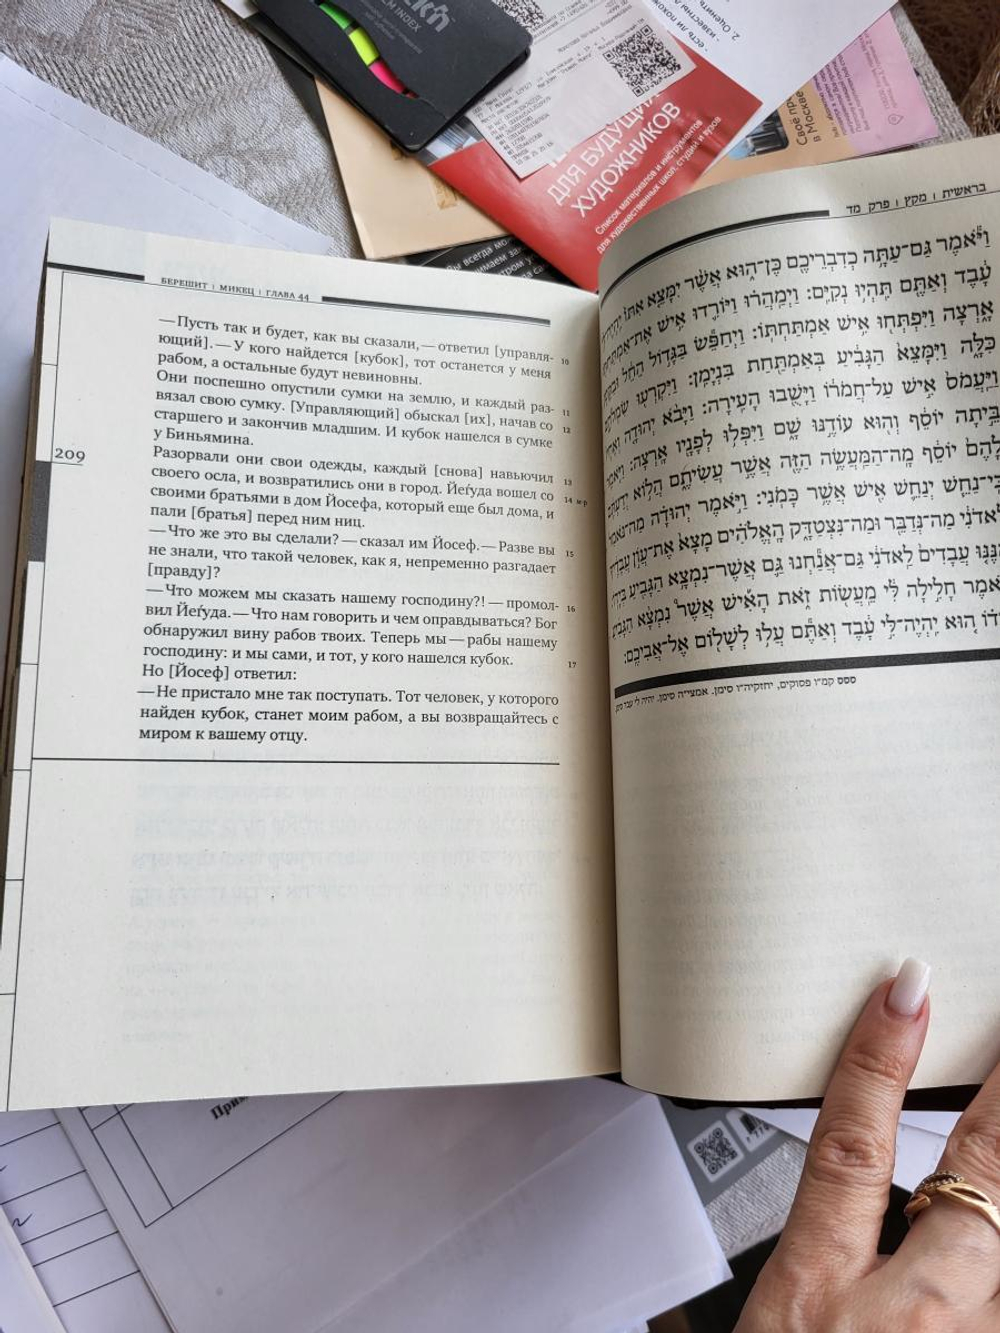 ДЛЯ БУДУЩИХ
ХУДОЖНИКОВ
Список материалов и инструментов
для художественных школ, студий и вузов
2. Оценить
Своё пр
в Москве
БЕРЕШИТ | МИКЕЦ | ГЛАВА 44
— Пусть так и будет, как вы сказали, — ответил [управля-
ющий]. — У кого найдется [кубок], тот останется у меня 10
рабом, а остальные будут невиновны.
Они поспешно опустили сумки на землю, и каждый раз- 11
вязал свою сумку. [Управляющий] обыскал [их], начав со 12
старшего и закончив младшим. И кубок нашелся в сумке
у Биньямина.
Разорвали они свои одежды, каждый [снова] навьючил 13
своего осла, и возвратились они в город. Йеѓуда вошел со 14 м-р
своими братьями в дом Йосефа, который еще был дома, и
пали [братья] перед ним ниц.
— Что же это вы сделали? — сказал им Йосеф. — Разве вы 15
не знали, что такой человек, как я, непременно разгадает
[правду]?
— Что можем мы сказать нашему господину?! — промол- 16
вил Йеѓуда. — Что нам говорить и чем оправдываться? Бог
обнаружил вину рабов твоих. Теперь мы — рабы нашему
господину: и мы сами, и тот, у кого нашелся кубок.
Но [Йосеф] ответил: 17
— Не пристало мне так поступать. Тот человек, у которого
найден кубок, станет моим рабом, а вы возвращайтесь с
миром к вашему отцу.
209
בראשית | מקץ | פרק מד
וַיֹּאמֶר גַּם־עַתָּה כְדִבְרֵיכֶם כֶּן־הוּא אֲשֶׁר יִמָּצֵא אִתּוֹ
עָבֶד וְאַתֶּם תִּהְיוּ נְקִיִּם: וַיְמַהֲרוּ וַיּוֹרִדוּ אִישׁ
אָרְצָה וַיִּפְתְּחוּ אִישׁ אַמְתַּחְתּוֹ: וַיְחַפֵּשׂ בַּגָּדוֹל הֵחֵל
כִּלָּה וַיִּמָּצֵא הַגָּבִיעַ בְּאַמְתַּחַת בִּנְיָמִן: וַיִּקְרְעוּ
וַיַּעֲמֹס אִישׁ עַל־חֲמֹרוֹ וַיָּשֻׁבוּ הָעִירָה: וַיָּבֹא יְהוּדָה
בֵּיתָה יוֹסֵף וְהוּא עוֹדֶנּוּ שָׁם וַיִּפְּלוּ לְפָנָיו אָרְצָה:
לָהֶם יוֹסֵף מָה־הַמַּעֲשֶׂה הַזֶּה אֲשֶׁר עֲשִׂיתֶם הֲלוֹא
כִּי־נַחֵשׁ יְנַחֵשׁ אִישׁ אֲשֶׁר כָּמֹנִי: וַיֹּאמֶר יְהוּדָה
לַאדֹנִי מַה־נְּדַבֵּר וּמַה־נִּצְטַדָּק הָאֱלֹהִים מָצָא אֶת־עֲוֹן
עֲבָדִים לַאדֹנִי גַּם־אֲנַחְנוּ גַּם אֲשֶׁר־נִמְצָא הַגָּבִיעַ
חָלִילָה לִּי מֵעֲשׂוֹת זֹאת הָאִישׁ אֲשֶׁר נִמְצָא הַגָּבִיעַ
הוּא יִהְיֶה־לִּי עָבֶד וְאַתֶּם עֲלוּ לְשָׁלוֹם אֶל־אֲבִיכֶם:
ססס קמ״ו פסוקים, יחזקיה״ו סימן. אמצי״ה סימן. יהיה לי עבד